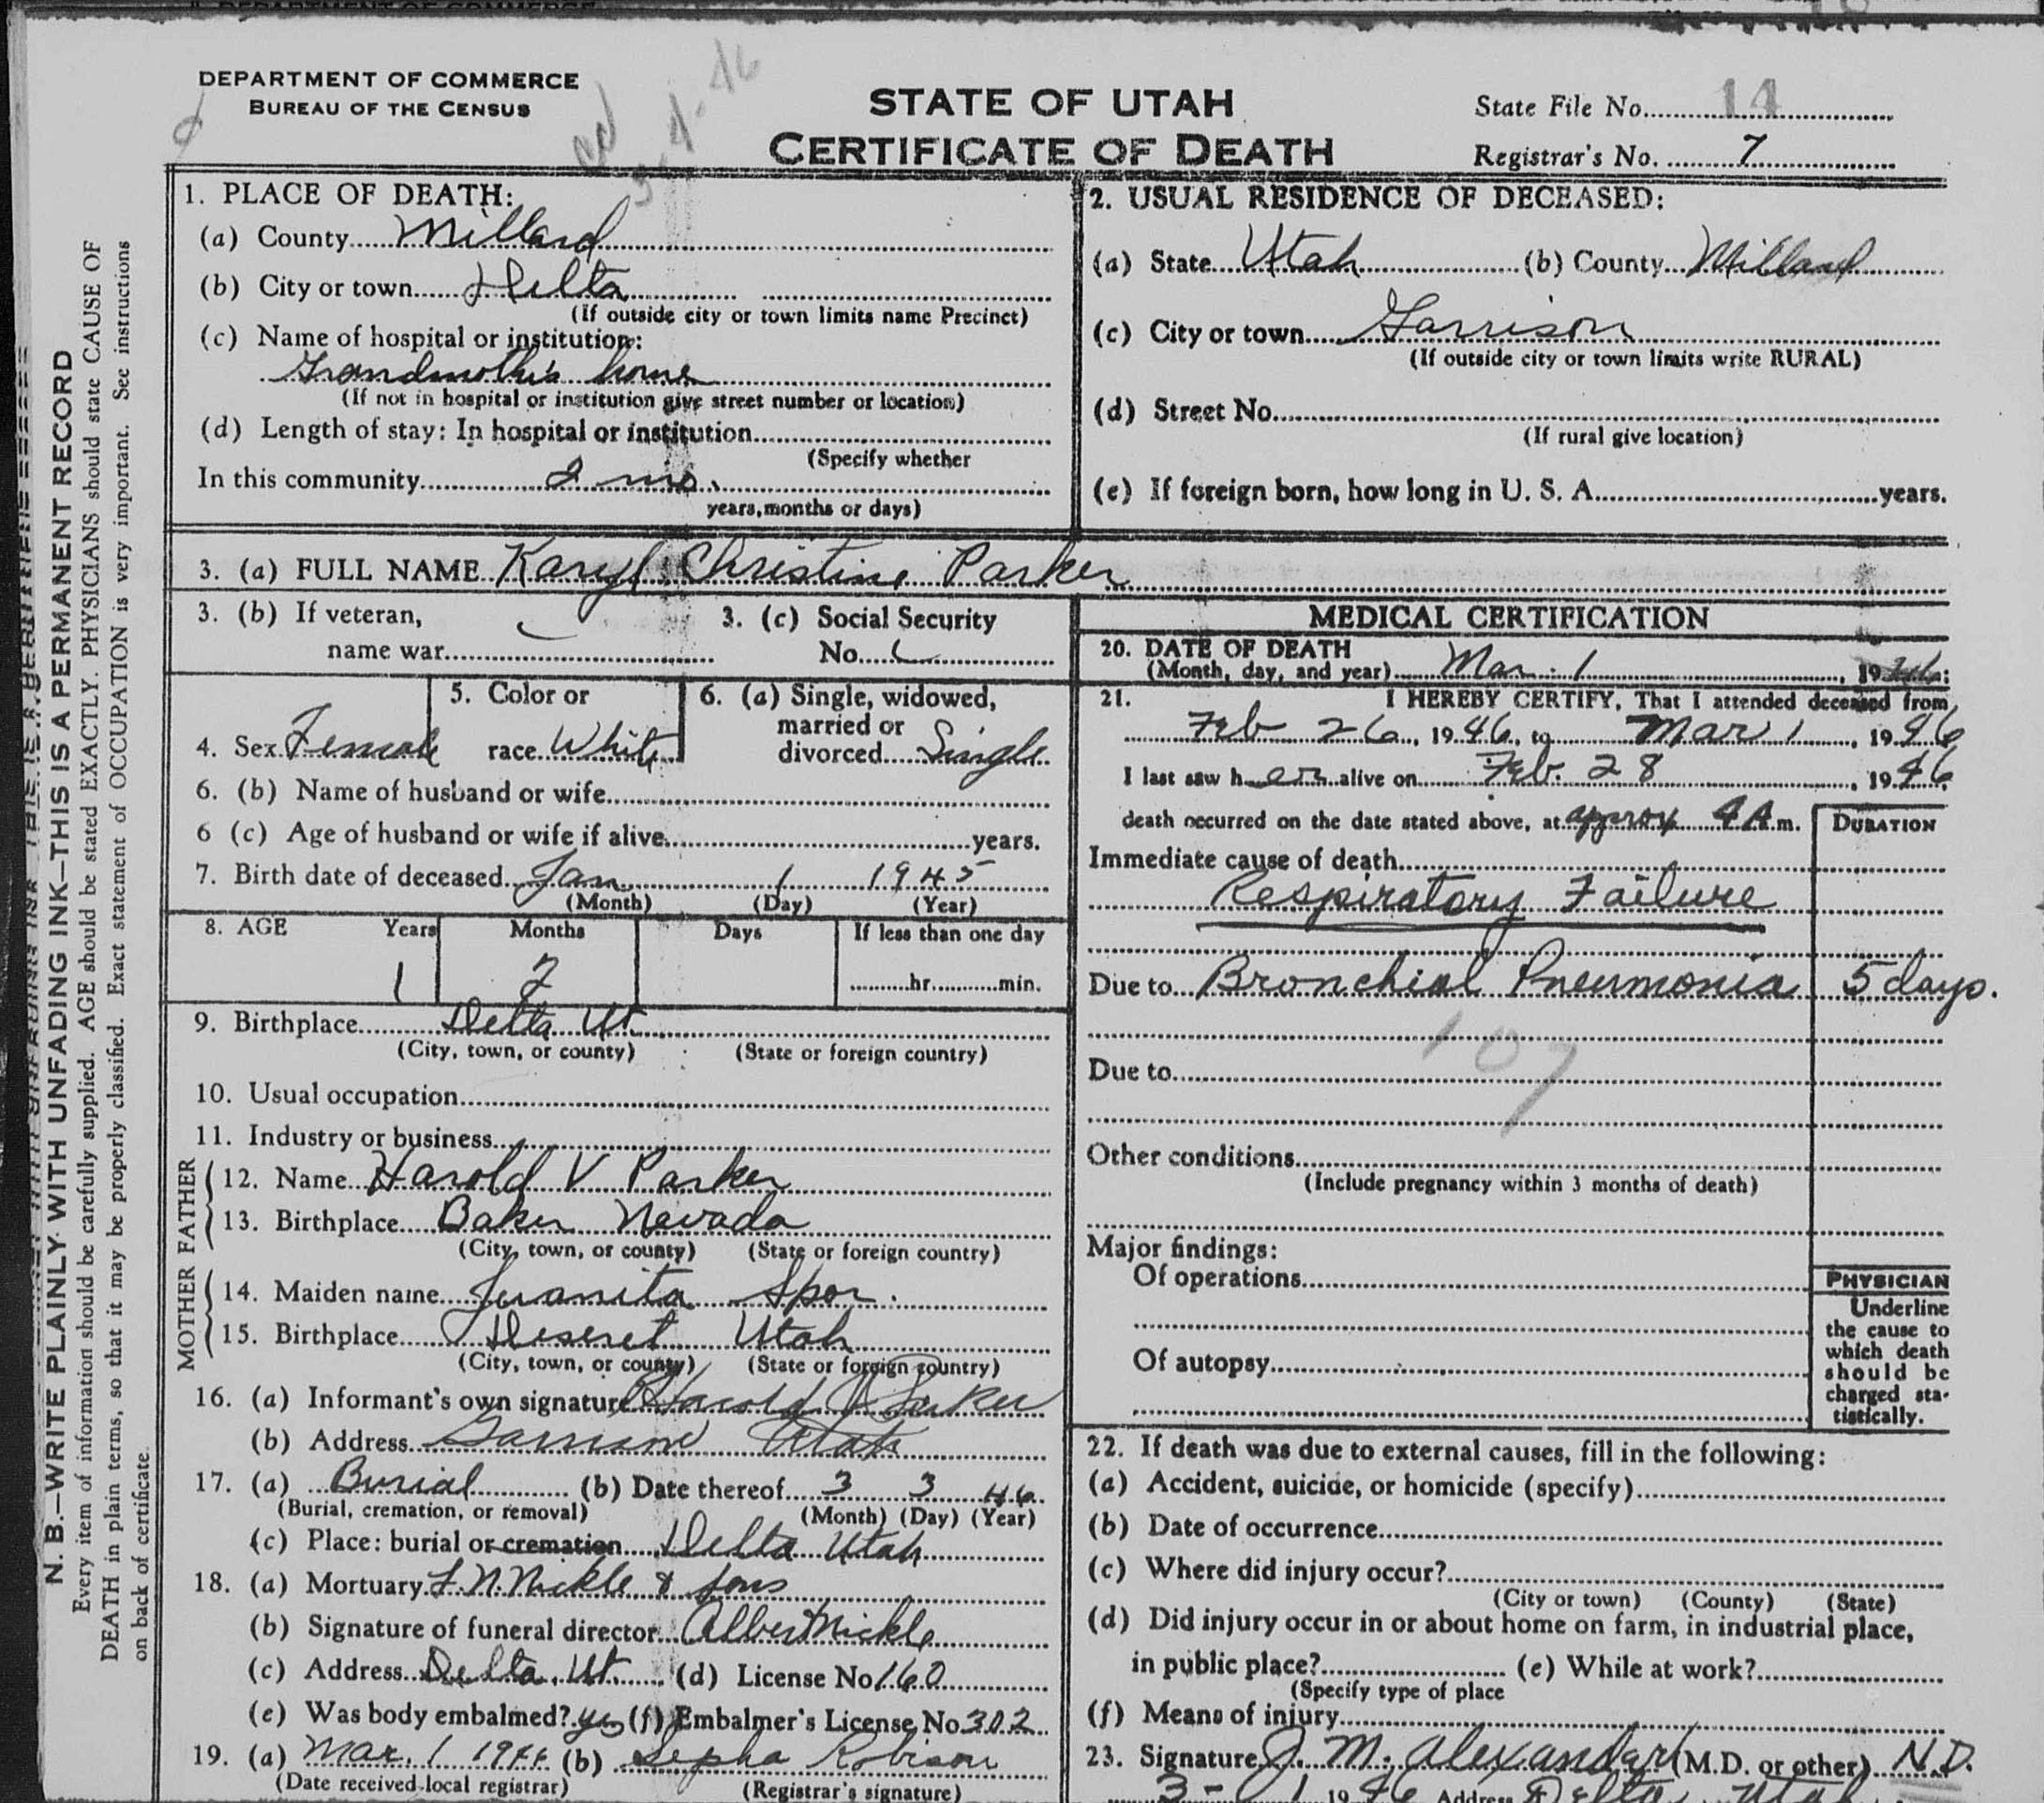 DEPARTMENT OF COMMERCE
BUREAU OF THE CENSUS
STATE OF UTAH
CERTIFICATE OF DEATH
State File No. 14
Registrar's No. 7
1. PLACE OF DEATH:
(a) County Millard
(b) City or town Delta
(If outside city or town limits name Precinct)
(c) Name of hospital or institution:
Grandmother's home
(If not in hospital or institution give street number or location)
(d) Length of stay: In hospital or institution
(Specify whether
In this community 2 mo.
years, months or days)
2. USUAL RESIDENCE OF DECEASED:
(a) State Utah (b) County Millard
(c) City or town Garrison
(If outside city or town limits write RURAL)
(d) Street No.
(If rural give location)
(e) If foreign born, how long in U. S. A. years.
3. (a) FULL NAME Karyl Christine Parker
3. (b) If veteran,
name war
3. (c) Social Security
No.
4. Sex Female
5. Color or
race White
6. (a) Single, widowed,
married or
divorced Single
6. (b) Name of husband or wife
6 (c) Age of husband or wife if alive years.
7. Birth date of deceased Jan 1 1945
(Month) (Day) (Year)
8. AGE Years Months Days If less than one day
1 2 hr. min.
9. Birthplace Delta Ut
(City, town, or county) (State or foreign country)
10. Usual occupation
11. Industry or business
FATHER
12. Name Harold V Parker
13. Birthplace Baker Nevada
(City, town, or county) (State or foreign country)
MOTHER
14. Maiden name Juanita Spor
15. Birthplace Deseret Utah
(City, town, or county) (State or foreign country)
16. (a) Informant's own signature Harold V Parker
(b) Address Garrison Utah
17. (a) Burial (b) Date thereof 3 3 46
(Burial, cremation, or removal) (Month) (Day) (Year)
(c) Place: burial or cremation Delta Utah
18. (a) Mortuary & Sons
(b) Signature of funeral director Albert Nickle
(c) Address Delta, Ut. (d) License No 160
(e) Was body embalmed? yes (f) Embalmer's License No 302
19. (a) Mar. 1 (b) Robison
(Date received local registrar) (Registrar's signature)
MEDICAL CERTIFICATION
20. DATE OF DEATH
(Month, day, and year) Mar. 1, 1946:
21. I HEREBY CERTIFY, That I attended deceased from
Feb 26, 1946, to Mar 1, 1946
I last saw her alive on Feb. 28, 1946
death occurred on the date stated above, at approx 4 A.m.
DURATION
Immediate cause of death
Respiratory Failure
Due to Bronchial Pneumonia 5 days.
107
Due to
Other conditions
(Include pregnancy within 3 months of death)
Major findings:
Of operations
Of autopsy
PHYSICIAN
Underline
the cause to
which death
should be
charged sta-
tistically.
22. If death was due to external causes, fill in the following:
(a) Accident, suicide, or homicide (specify)
(b) Date of occurrence
(c) Where did injury occur?
(City or town) (County) (State)
(d) Did injury occur in or about home on farm, in industrial place,
in public place? (e) While at work?
(Specify type of place
(f) Means of injury
23. Signature J. M. Alexander (M.D. or other)
3-1 1946 Address Delta, Utah
N. B.—WRITE PLAINLY WITH UNFADING INK—THIS IS A PERMANENT RECORD
Every item of information should be carefully supplied. AGE should be stated EXACTLY. PHYSICIANS should state CAUSE OF
DEATH in plain terms, so that it may be properly classified. Exact statement of OCCUPATION is very important. See instructions
on back of certificate.